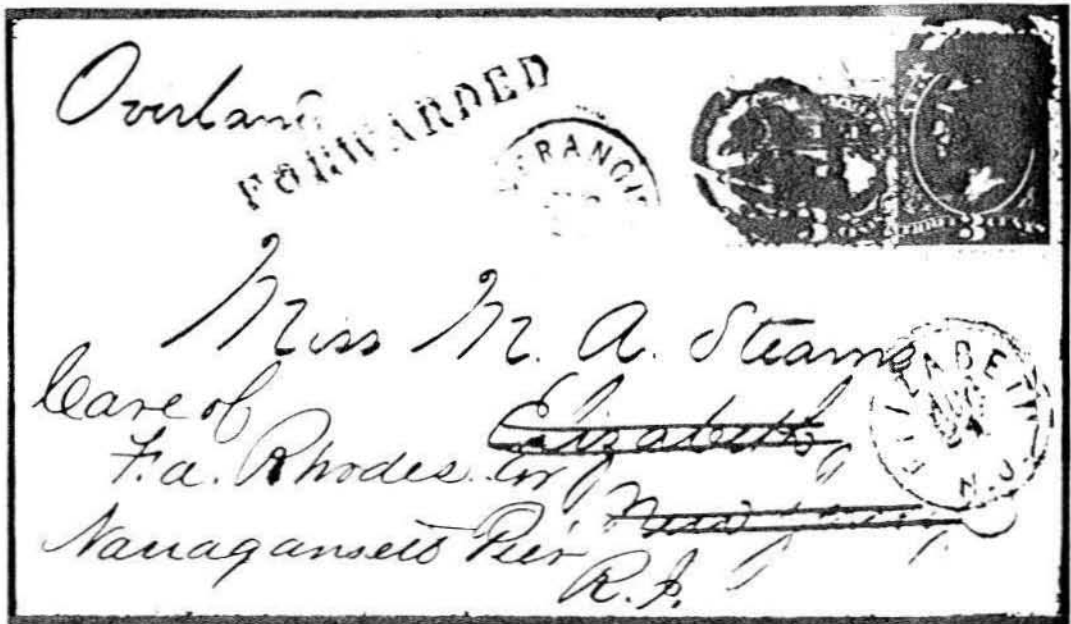 Overland
FORWARDED
FRANCI
3 3
Miss M. A. Stearns
Care of
Elizabeth
F. a. Rhodes
New
Narragansett Pier
R. I.
ELIZABETH
AUG
N.J.